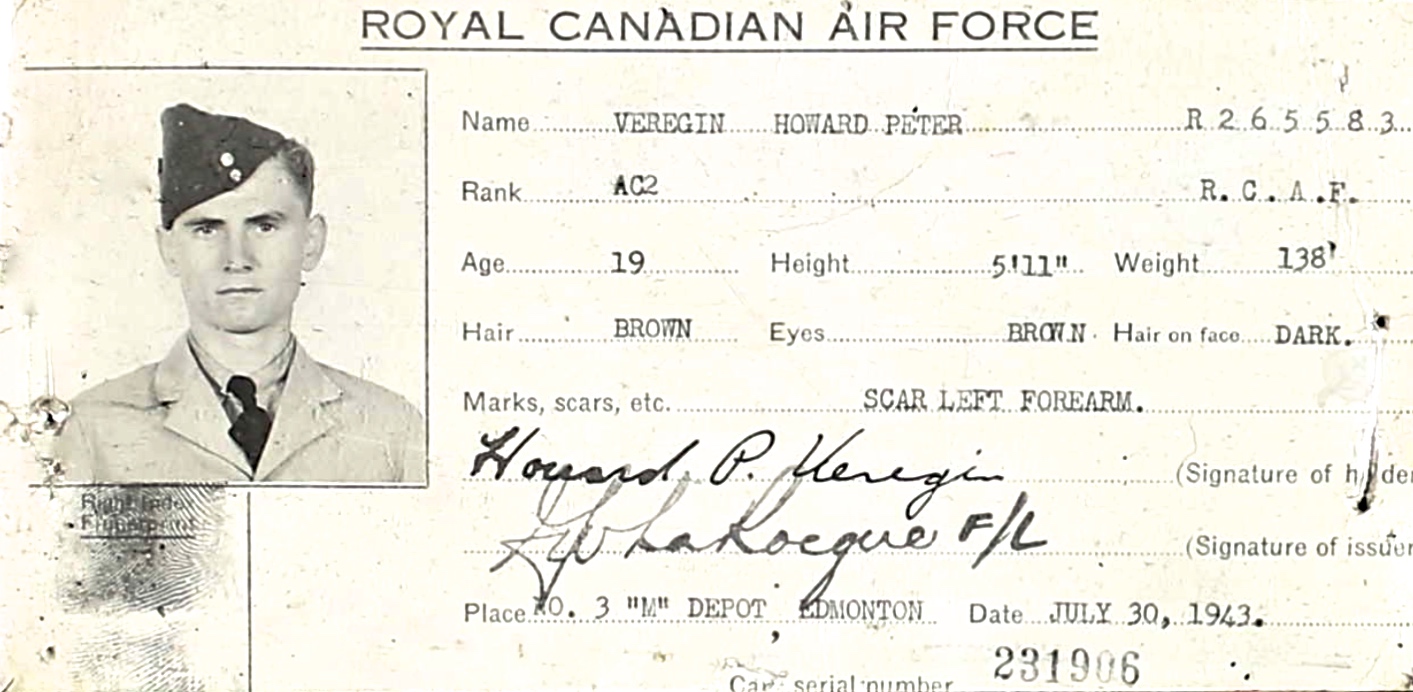 ROYAL CANADIAN AIR FORCE
Name VEREGIN HOWARD PETER R 2 6 5 5 8 3
Rank AC2 R. C. A .F.
Age 19 Height 5'11" Weight 138'
Hair BROWN Eyes BROWN Hair on face DARK.
Marks, scars, etc. SCAR LEFT FOREARM.
Howard P. Veregin (Signature of holder
Right Index
Fingerprint
LaRocque F/L (Signature of issuer
Place NO. 3 "M" DEPOT EDMONTON Date JULY 30, 1943.
Card serial number 231906